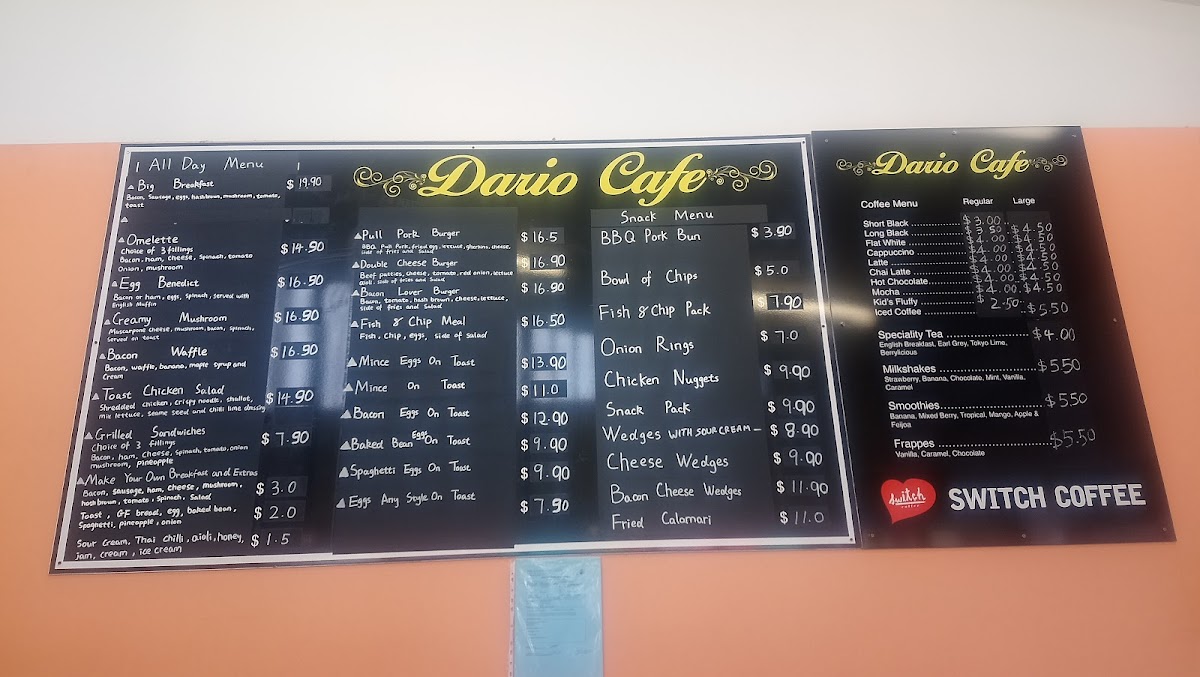 All Day Menu
Big Breakfast $19.90
Bacon, Sausage, eggs, hashbrown, mushroom, tomato,
toast
Omelette $14.90
Choice of 3 fillings
Bacon, ham, cheese, Spinach, tomato
Onion, mushroom
Egg Benedict $16.90
Bacon or ham, eggs, spinach, served with
English Muffin
Creamy Mushroom $16.90
Mascarpone cheese, mushroom, bacon, spinach,
Served on toast
Bacon Waffle $16.90
Bacon, waffle, banana, maple syrup and
Cream
Toast Chicken Salad $14.90
Shredded chicken, crispy noodle, shallot,
mix lettuce, sesame seed and chilli lime dressing
Grilled Sandwiches $7.90
Choice of 3 fillings
Bacon, ham, cheese, Spinach, tomato, onion
mushroom, pineapple
Make Your Own Breakfast and Extras
Bacon, sausage, ham, cheese, mushroom, $3.0
hashbrown, tomato, spinach, Salad
Toast, GF bread, egg, baked bean, $2.0
Spaghetti, pineapple, onion
Sour Cream, Thai chilli, aioli, honey, $1.5
jam, cream, ice cream
Dario Cafe
Pull Pork Burger $16.5
BBQ Pull Pork, fried egg, lettuce, gherkins, cheese,
side of fries and Salad
Double Cheese Burger $16.90
Beef patties, cheese, tomato, red onion, lettuce
aioli, side of fries and Salad
Bacon Lover Burger $16.90
Bacon, tomato, hash brown, cheese, lettuce,
side of fries and Salad
Fish & Chip Meal $16.50
Fish, Chip, eggs, side of Salad
Mince Eggs On Toast $13.90
Mince On Toast $11.0
Bacon Eggs On Toast $12.90
Baked Bean Eggs On Toast $9.90
Spaghetti Eggs On Toast $9.90
Eggs Any Style On Toast $7.90
Snack Menu
BBQ Pork Bun $3.90
Bowl of Chips $5.0
Fish & Chip Pack $7.90
Onion Rings $7.0
Chicken Nuggets $9.90
Snack Pack $9.90
Wedges WITH SOUR CREAM — $8.90
Cheese Wedges $9.90
Bacon Cheese Wedges $11.90
Fried Calamari $11.0
Dario Cafe
Coffee Menu Regular Large
Short Black $3.00
Long Black $4.50
Flat White $4.50
Cappuccino $4.50
Latte $4.50
Chai Latte $4.00 $4.50
Hot Chocolate $4.00 $4.50
Mocha $4.00 $4.50
Kid's Fluffy 2.50
Iced Coffee $5.50
Speciality Tea $4.00
English Breakfast, Earl Grey, Tokyo Lime,
Berrylicious
Milkshakes $5.50
Strawberry, Banana, Chocolate, Mint, Vanilla,
Caramel
Smoothies $5.50
Banana, Mixed Berry, Tropical, Mango, Apple &
Feijoa
Frappes $5.50
Vanilla, Caramel, Chocolate
switch
coffee
SWITCH COFFEE